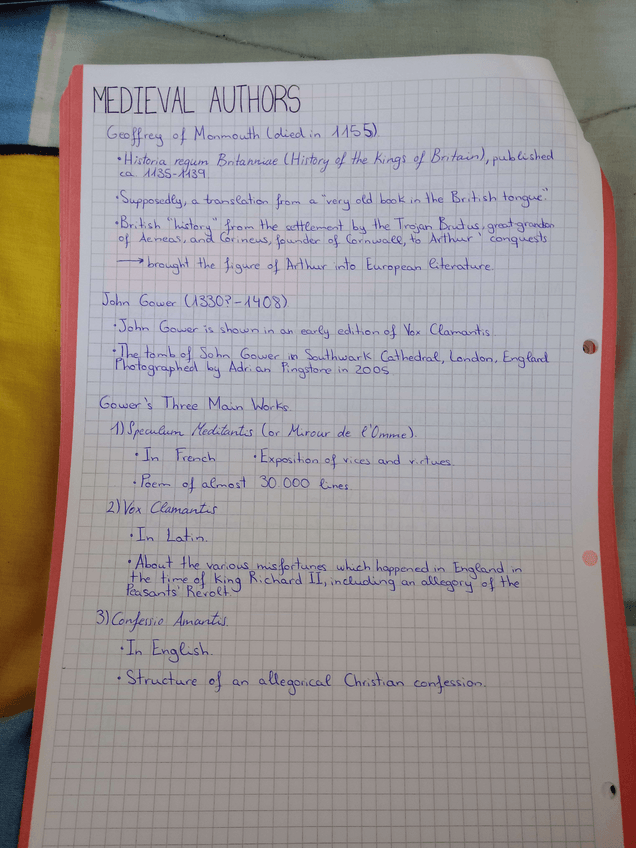 MEDIEVAL AUTHORS
Geoffrey of Monmouth (died in 1155)
• Historia regum Britanniae (History of the Kings of Britain), published
ca. 1135-1139.
• Supposedly, a translation from a "very old book in the British tongue."
• British "history" from the settlement by the Trojan Brutus, great-grandson
of Aeneas, and Corineus, founder of Cornwall, to Arthur' conquests
→ brought the figure of Arthur into European literature.
John Gower (1330?-1408)
• John Gower is shown in an early edition of Vox Clamantis.
• The tomb of John Gower in Southwark Cathedral, London, England
Photographed by Adrian Pingstone in 2005
Gower's Three Main Works.
1) Speculum Meditantis (or Mirour de l'Omme).
• In French • Exposition of vices and virtues.
• Poem of almost 30 000 lines.
2) Vox Clamantis
• In Latin.
• About the various misfortunes which happened in England in
the time of King Richard II, including an allegory of the
Peasants' Revolt.
3) Confessio Amantis.
• In English.
• Structure of an allegorical Christian confession.